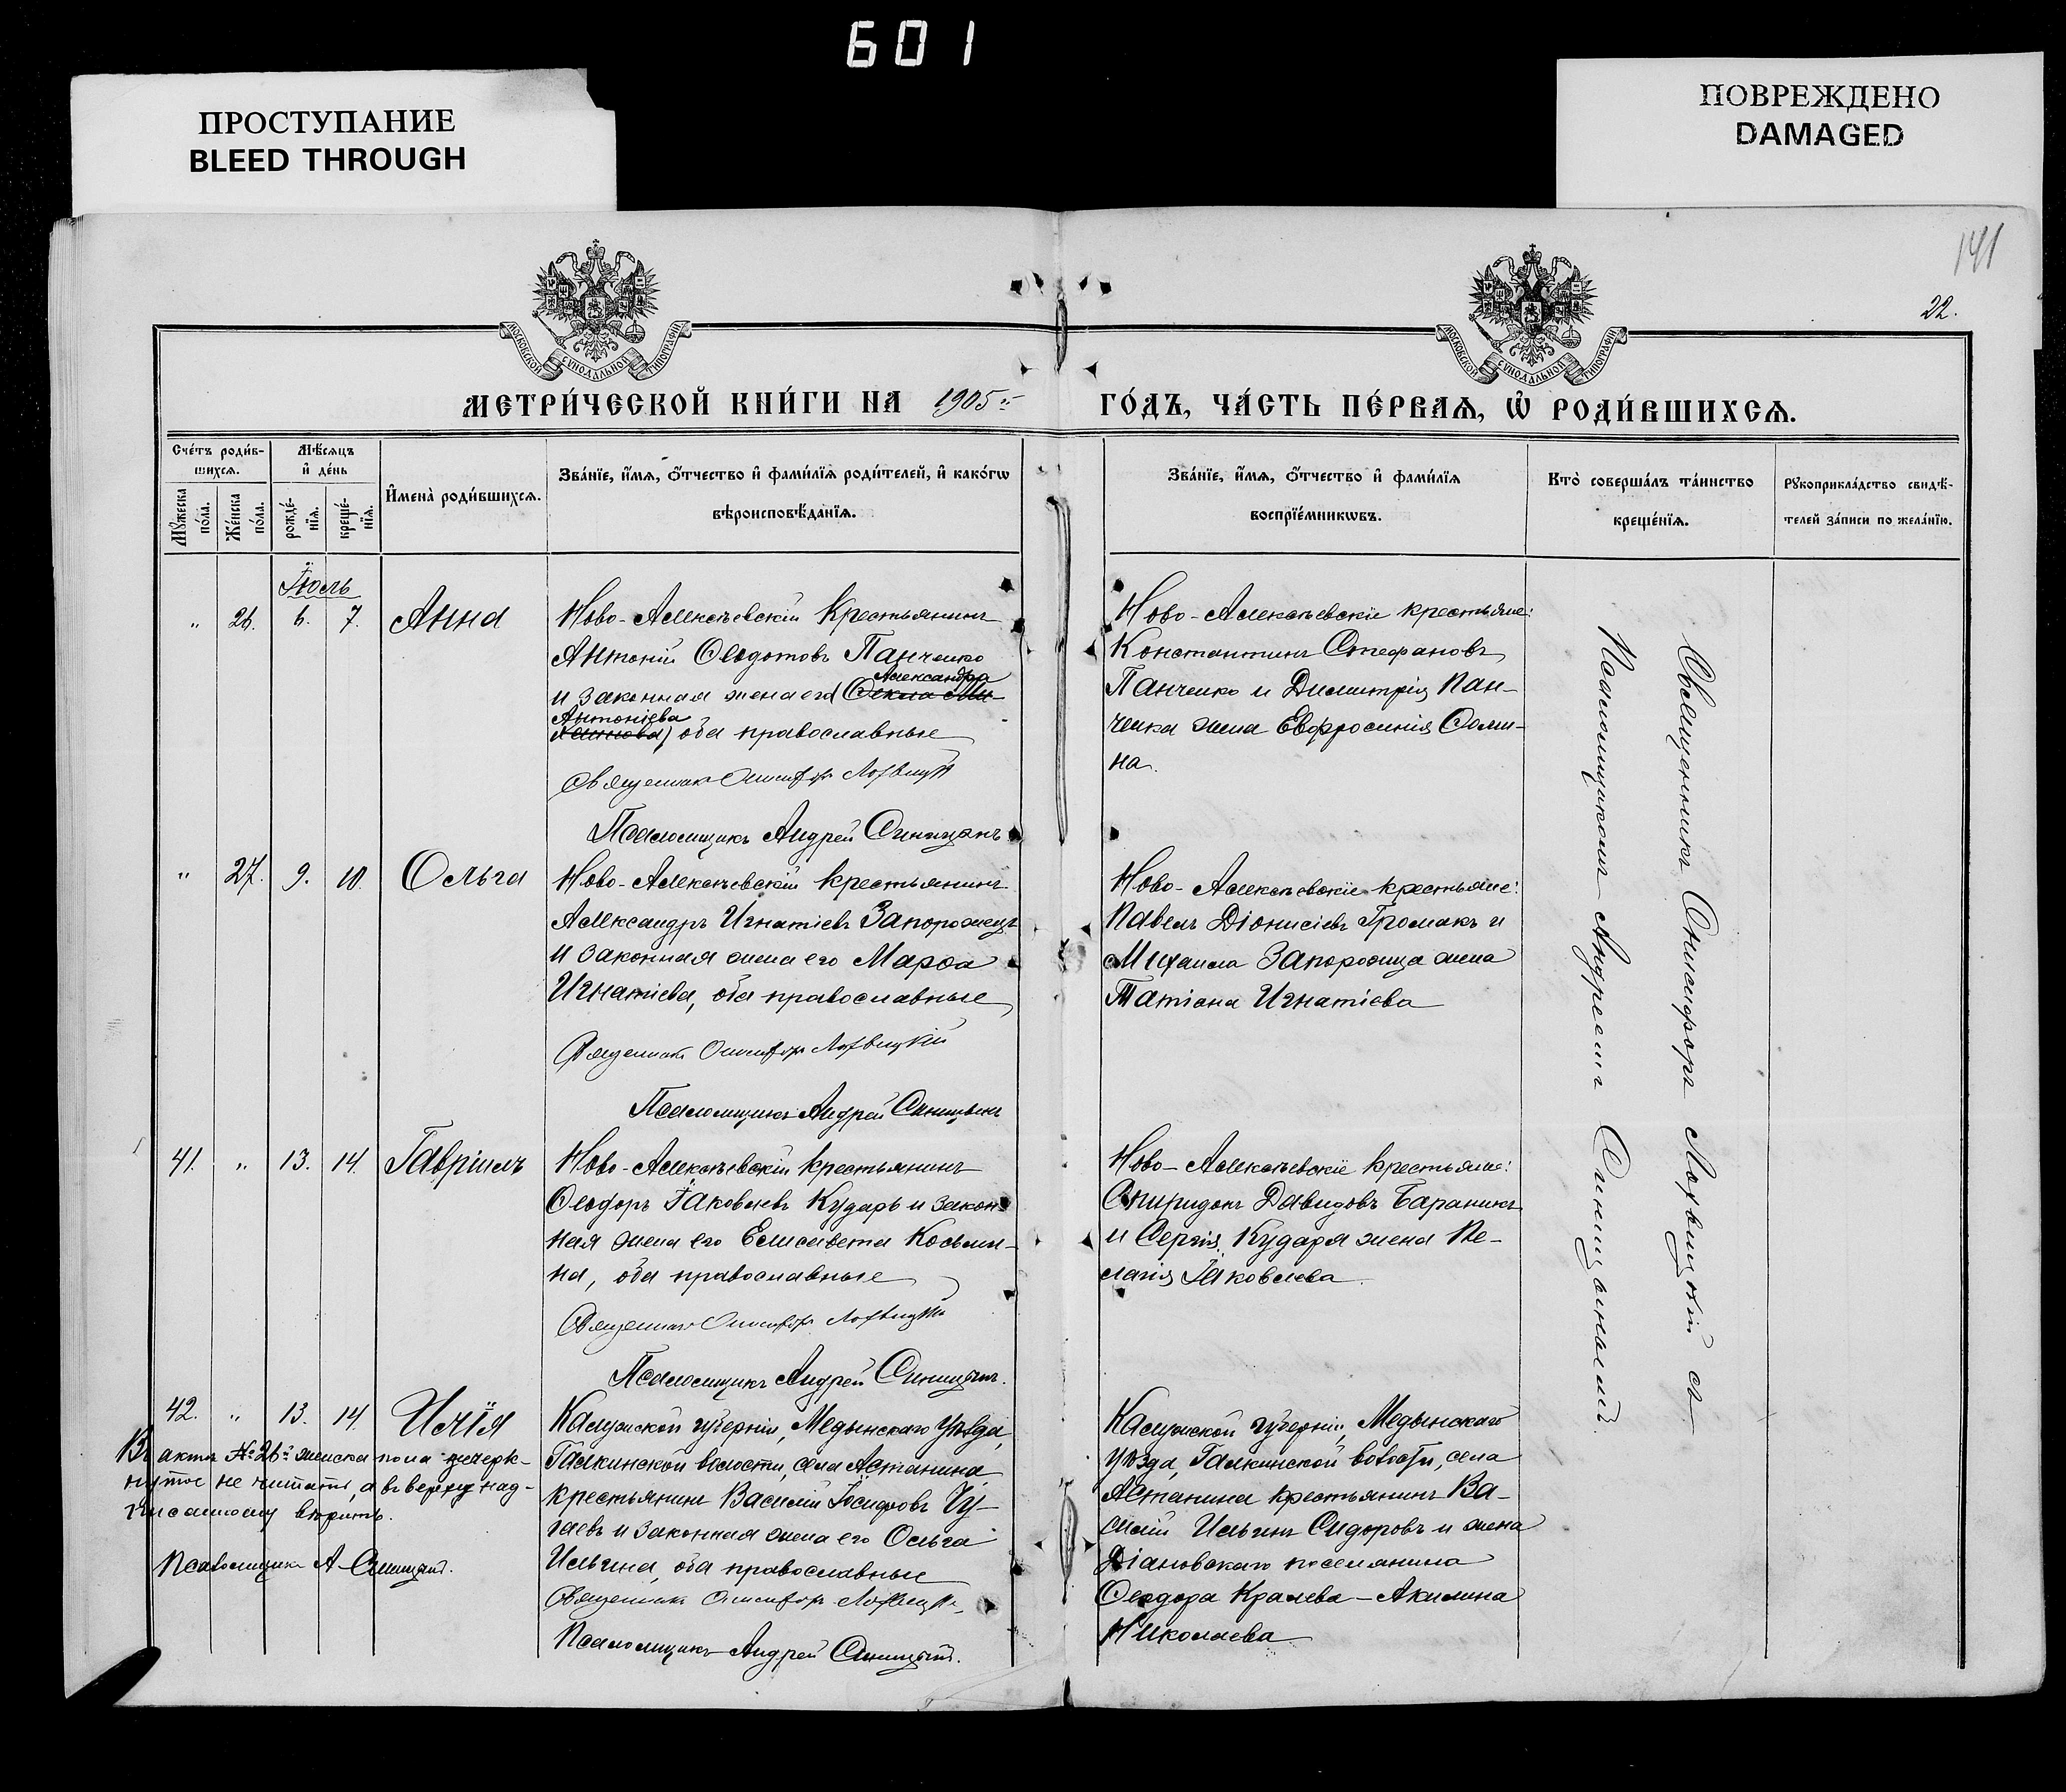 601
ПРОСТУПАНИЕ
BLEED THROUGH
ПОВРЕЖДЕНО
DAMAGED
141
22.
МОСКОВСКОЙ СѴНОДАЛЬНОЙ ТИПОГРАФІИ
МОСКОВСКОЙ СѴНОДАЛЬНОЙ ТИПОГРАФІИ
МЕТРИ́ЧЕСКОЙ КНИ́ГИ НА 1905й ГО́ДЪ, ЧА́СТЬ ПЕ́РВАѦ, Ѡ҆ РОДИ́ВШИХСѦ.
Сче́тъ роди́в-
шихсѧ.
Мѣ́сѧцъ
и҆ де́нь
Мꙋ́жеска
по́ла.
Же́нска
по́ла.
рожде́-
нїѧ.
креще́-
нїѧ.
И҆мена̀ роди́вшихсѧ.
Зва́нїе, и҆́мѧ, ѻ҆́тчество и҆ фами́лїѧ роди́телей, и҆ како́гѡ
вѣроисповѣ́данїѧ.
Зва́нїе, и҆́мѧ, ѻ҆́тчество и҆ фами́лїѧ
воспрїе́мникѡвъ.
Кто̀ соверша́лъ та́инство
креще́нїѧ.
Рꙋкоприкла́дство свидѣ́-
телей за́писи по жела́нїю.
Іюль
" 26. 6. 7. Анна
Ново-Алексѣевскій крестьянинъ
Антоній Ѳеодотовъ Панченко
Александра
и законная жена его (Ѳекла
Антоніева
оба православные
Священникъ Онисифоръ Лотвицкій
Псаломщикъ Андрей Синицынъ
Ново-Алексѣевскіе крестьяне:
Константинъ Стефановъ
Панченко и Димитрія Пан-
ченка жена Евфросинія Ѳоми-
на.
" 27. 9. 10. Ольга
Ново-Алексѣевскій крестьянинъ
Александръ Игнатіевъ Запорожецъ
и законная жена его Марѳа
Игнатіева, оба православные
Священникъ Онисифоръ Лотвицкій
Псаломщикъ Андрей Синицынъ
Ново-Алексѣевскіе крестьяне:
Павелъ Діонисіевъ Громакъ и
Михаила Запорожца жена
Татіана Игнатіева
41. " 13. 14. Гавріилъ
Ново-Алексѣевскій крестьянинъ
Ѳеодоръ Іаковлевъ Кударь и закон-
ная жена его Елисавета Косьми-
на, оба православные
Священникъ Онисифоръ Лотвицкій
Псаломщикъ Андрей Синицынъ.
Ново-Алексѣевскіе крестьяне:
Спиридонъ Давидовъ Баранникъ
и Сергія Кударя жена Пе-
лагія Іаковлева.
42. " 13. 14. Илія
Калужской губерніи, Медынскаго уѣзда,
Галкинской волости, села Астанина,
крестьянинъ Василій Іосифовъ Чу-
гаевъ и законная жена его Ольга
Ильина, оба православные
Священникъ Онисифоръ Лотвицкій
Псаломщикъ Андрей Синицынъ.
Калужской губерніи, Медынскаго
уѣзда, Галкинской волости, села
Астанина крестьянинъ Ва-
силій Ильинъ Сидоровъ и жена
Діановскаго поселянина
Ѳеодора Кралева - Акилина
Николаева
Въ актѣ № 26й женска пола зачерк-
нутое не читать, а въ верху над-
писанному вѣрить.
Псаломщикъ А Синицынъ.
Священникъ Онисифоръ Лотвицкій съ
Псаломщикомъ Андреемъ Синицынымъ.